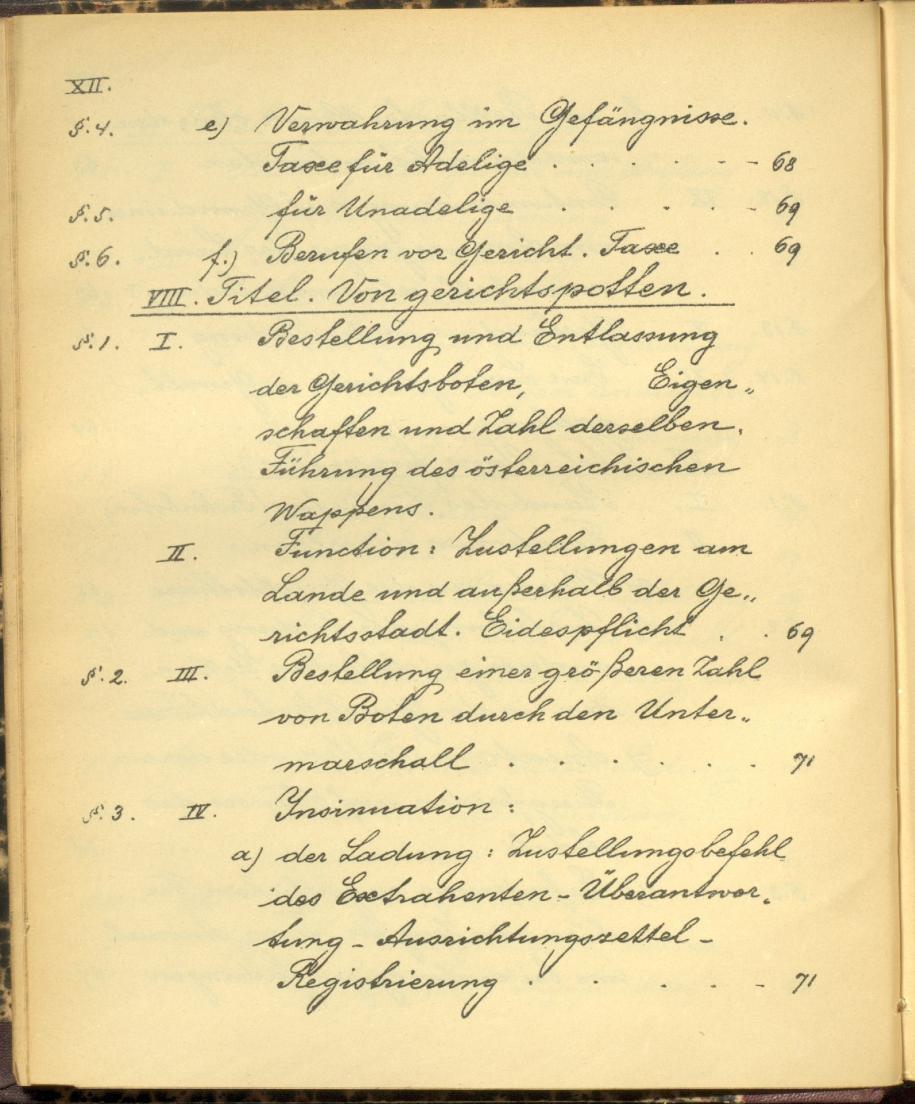 XII.
§. 4. e) Verwahrung im Gefängnisse.
Taxe für Adelige . . . . . . - 68
§. 5. für Unadelige . . . . - 69
§. 6. f.) Berufen vor Gericht. Taxe . . 69
VIII. Titel. Von gerichtspotten.
§. 1. I. Bestellung und Entlassung
der Gerichtsboten, Eigen„
schaften und Zahl derselben.
Führung des österreichischen
Wappens.
II. Function: Zustellungen am
Lande und außerhalb der Ge„
richtsstadt. Eidespflicht . . 69
§. 2. III. Bestellung einer größeren Zahl
von Boten durch den Unter„
marschall . . . . . . . 71
§. 3. IV. Insinuation:
a) der Ladung: Zustellungsbefehl
des Extrahenten - Überantwor„
tung - Ausrichtungszettel -
Registrierung . . . . . - 71